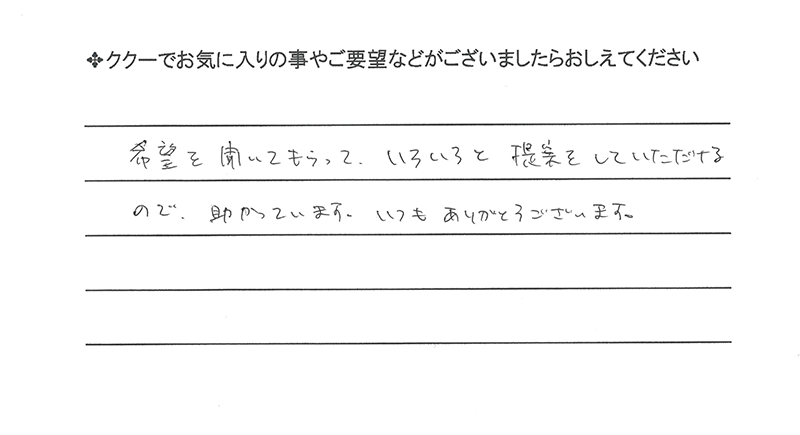 ✤ククーでお気に入りの事やご要望などがございましたらおしえてください
希望を聞いてもらって、いろいろと提案をしていただける
ので、助かっています。いつもありがとうございます。